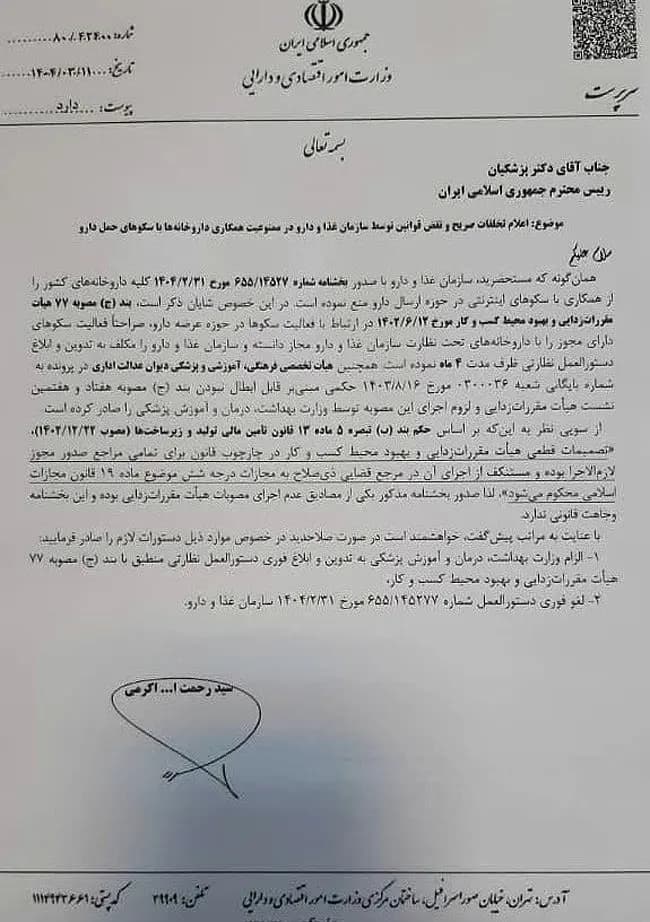 جمهوری اسلامی ایران
وزارت امور اقتصادی و دارایی
شماره: ۸۰/۴۲۴۰۰
تاریخ: ۱۴۰۴/۰۳/۱۱
پیوست: دارد
سرپرست
بسمه تعالی
جناب آقای دکتر پزشکیان
رییس محترم جمهوری اسلامی ایران
موضوع: اعلام تخلفات صریح و نقض قوانین توسط سازمان غذا و دارو در ممنوعیت همکاری داروخانه‌ها با سکوهای حمل دارو
سلام علیکم
همان‌گونه که مستحضرید، سازمان غذا و دارو با صدور بخشنامه شماره ۶۵۵/۱۴۵۲۷ مورخ ۱۴۰۴/۲/۳۱ کلیه داروخانه‌های کشور را
از همکاری با سکوهای اینترنتی در حوزه ارسال دارو منع نموده است. در این خصوص شایان ذکر است، بند (ج) مصوبه ۷۷ هیأت
مقررات‌زدایی و بهبود محیط کسب و کار مورخ ۱۴۰۲/۶/۱۲ در ارتباط با فعالیت سکوها در حوزه عرضه دارو، صراحتاً فعالیت سکوهای
دارای مجوز را با داروخانه‌های تحت نظارت سازمان غذا و دارو مجاز دانسته و سازمان غذا و دارو را مکلف به تدوین و ابلاغ
دستورالعمل نظارتی ظرف مدت ۴ ماه نموده است. همچنین هیأت تخصصی فرهنگی، آموزشی و پزشکی دیوان عدالت اداری در پرونده به
شماره بایگانی شعبه ۰۳۰۰۰۳۶ مورخ ۱۴۰۳/۸/۱۶ حکمی مبنی‌بر قابل ابطال نبودن بند (ج) مصوبه هفتاد و هفتمین
نشست هیأت مقررات‌زدایی و لزوم اجرای این مصوبه توسط وزارت بهداشت، درمان و آموزش پزشکی را صادر کرده است.
از سویی نظر به این‌که بر اساس حکم بند (ب) تبصره ۵ ماده ۱۳ قانون تأمین مالی تولید و زیرساخت‌ها (مصوب ۱۴۰۲/۱۲/۲۲)،
«تصمیمات قطعی هیأت مقررات‌زدایی و بهبود محیط کسب و کار در چارچوب قانون برای تمامی مراجع صدور مجوز
لازم‌الاجرا بوده و مستنکف از اجرای آن در مرجع قضایی ذی‌صلاح به مجازات درجه شش موضوع ماده ۱۹ قانون مجازات
اسلامی محکوم می‌شود»، لذا صدور بخشنامه مذکور یکی از مصادیق عدم اجرای مصوبات هیأت مقررات‌زدایی بوده و این بخشنامه
وجاهت قانونی ندارد.
با عنایت به مراتب پیش‌گفت، خواهشمند است در صورت صلاحدید در خصوص موارد ذیل دستورات لازم را صادر فرمایید:
۱- الزام وزارت بهداشت، درمان و آموزش پزشکی به تدوین و ابلاغ فوری دستورالعمل نظارتی منطبق با بند (ج) مصوبه ۷۷
هیأت مقررات‌زدایی و بهبود محیط کسب و کار،
۲- لغو فوری دستورالعمل شماره ۶۵۵/۱۴۵۲۷۷ مورخ ۱۴۰۴/۲/۳۱ سازمان غذا و دارو.
سید رحمت ا... اکرمی
آدرس: تهران، خیابان صور اسرافیل، ساختمان مرکزی وزارت امور اقتصادی و دارایی تلفن: ۳۹۹۰۹ کدپستی: ۱۱۱۴۹۴۳۶۶۱